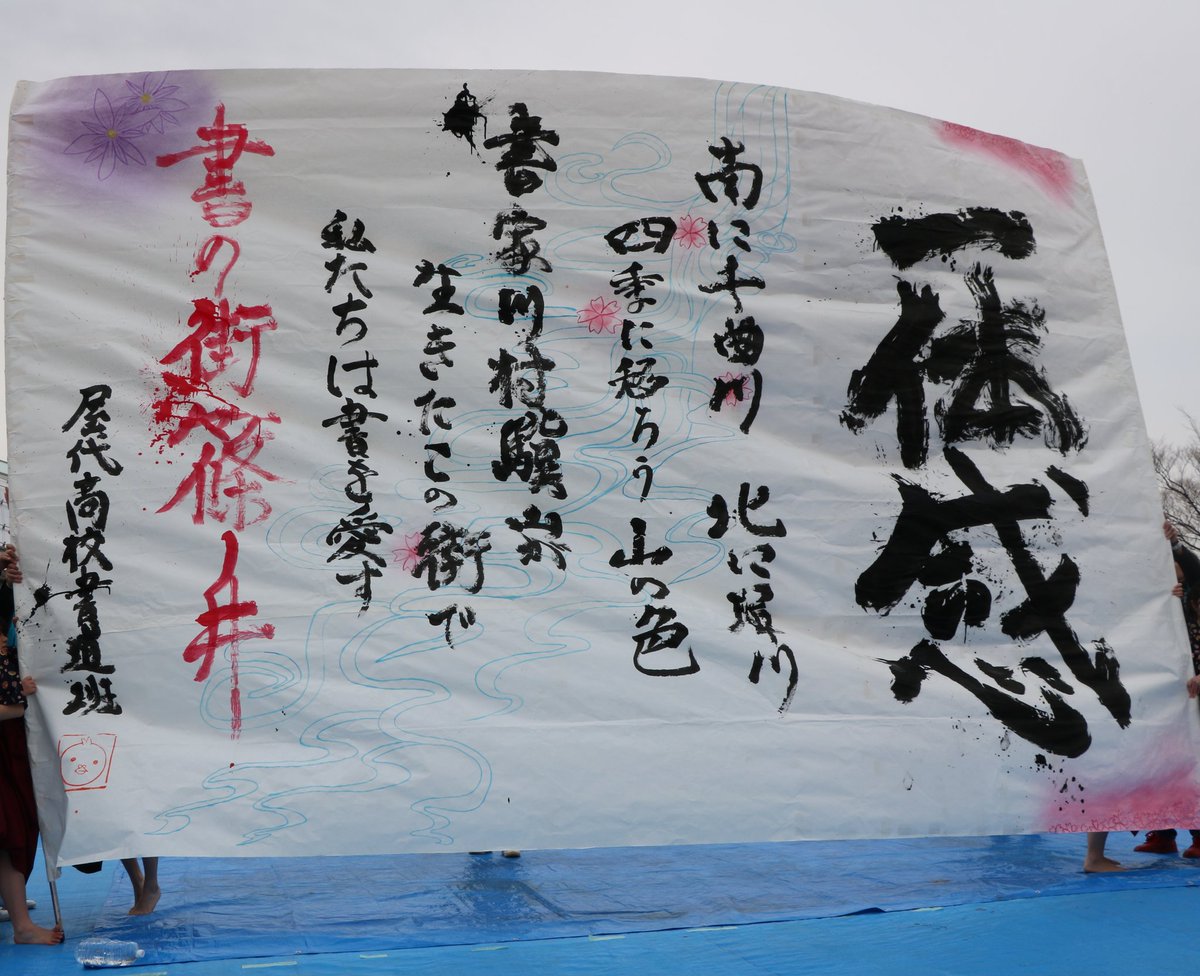 一体感
南に千曲川 北に犀川
四季に移ろう山の色
書家川村驥山
生きたこの街で
私たちは書を愛す
書の街篠ノ井
屋代高校書道班